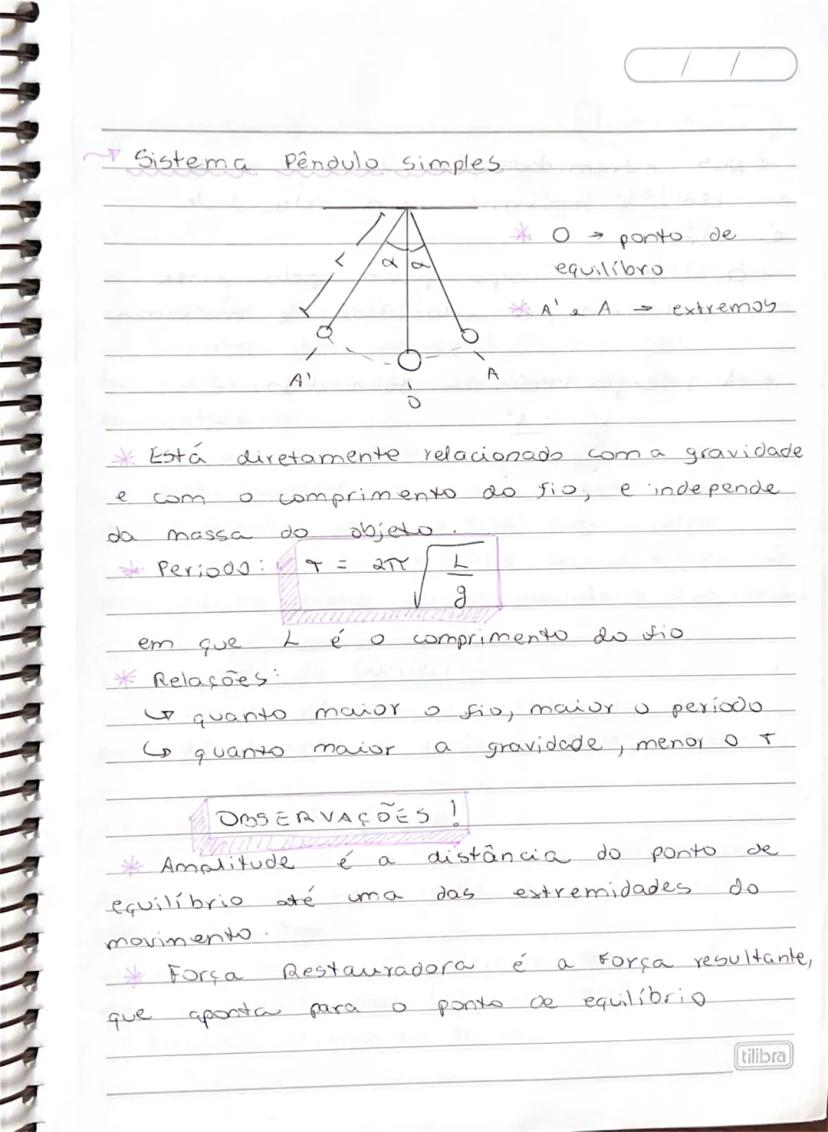 / /
Sistema Pêndulo simples
L
α α
* O → ponto de
equilíbro
* A' e A → extremos
A'
A
O
* Está diretamente relacionado com a gravidade
e com o comprimento do fio, e independe
da massa do objeto.
* Período: T = 2π √(L/g)
em que L é o comprimento do fio
* Relações:
↳ quanto maior o fio, maior o período
↳ quanto maior a gravidade, menor o T
OBSERVAÇÕES!
* Amplitude é a distância do ponto de
equilíbrio até uma das extremidades do
movimento.
* Força Restauradora é a Força resultante,
que aponta para o ponto de equilíbrio
tilibra